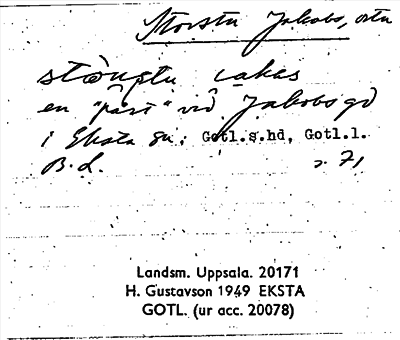 Storstu Jakobs, ortn
stòṇstu i̯akås
en "påst" vid Jakobs gd
i Eksta sn, Gotl.s.hd, Gotl.l.
B.d. s. 71
Landsm. Uppsala. 20171
H. Gustavson 1949 EKSTA
GOTL. (ur acc. 20078)